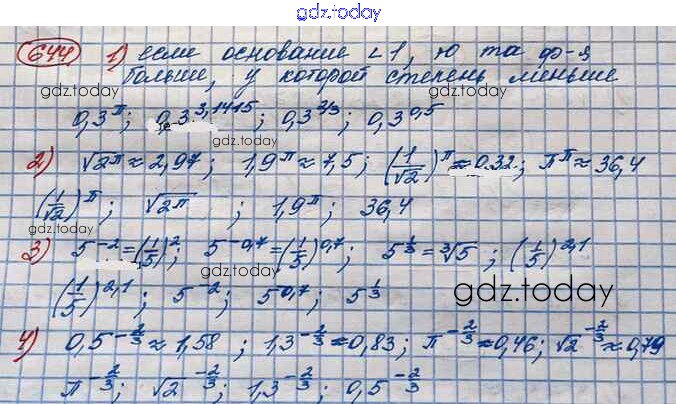 gdz.today
644 1) если основание < 1, то та ф-я
больше, у которой степень меньше
gdz.today gdz.today
0,3^π; 0,3^3,1415; 0,3^2/3; 0,3^0,5
gdz.today
2) √2^π ≈ 2,97; 1,9^π ≈ 7,5; (1/√2)^π ≈ 0.32; π^π ≈ 36,4
gdz.today
(1/√2)^π; √2^π; 1,9^π; 36,4
gdz.today
3) 5^-2 = (1/5)^2; 5^-0,7 = (1/5)^0,7; 5^1/3 = ∛5; (1/5)^2,1
gdz.today
(1/5)^2,1; 5^-2; 5^0,7; 5^1/3
gdz.today
4) 0,5^-2/3 ≈ 1,58; 1,3^-2/3 ≈ 0,83; π^-2/3 ≈ 0,46; √2^-2/3 ≈ 0,79
π^-2/3; √2^-2/3; 1,3^-2/3; 0,5^-2/3